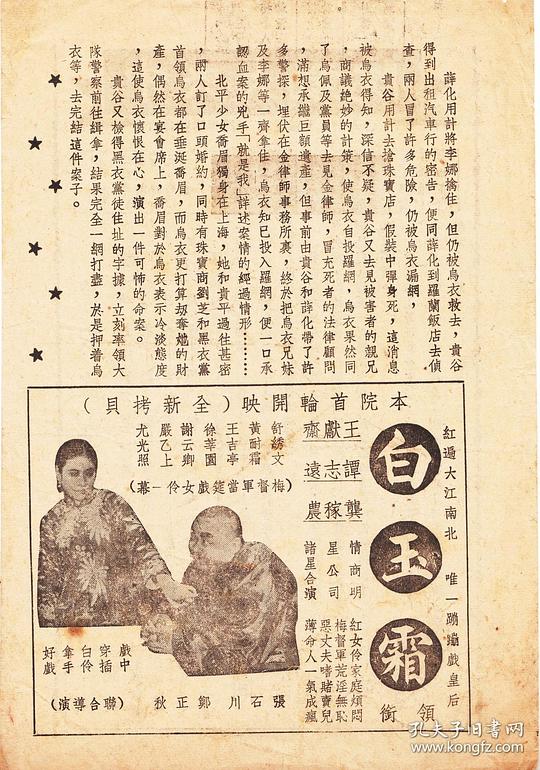 薛化用計將李娜擒住，但仍被烏衣救去，貴谷
得到出租汽車行的密告，便同薛化到羅蘭飯店去偵
查，兩人冒了許多危險，仍被烏衣漏網，
貴谷用計去搶珠寶店，假裝中彈身死，這消息
被烏衣得知，深信不疑，貴谷又去見被害者的親兄
，商議絶妙的計策，使烏衣自投羅網，烏衣果然同
了烏佩及黨員等去見金律師，冒充死者的法律顧問
，滿想承繼巨額遺產，但事前由貴谷和薛化帶了許
多警探，埋伏在金律師事務所裏，終於把烏衣兄妹
及李娜等一齊拿住，烏衣知已投入羅網，便一口承
認血案的兇手「就是我」詳述案情的經過情形………
北平少女喬眉獨身在上海，她和貴平過往甚密
，兩人訂了口頭婚約，同時有珠寶商劉芝和黑衣黨
首領烏衣都在垂涎喬眉，而烏衣更打算刼奪她的財
產，偶然在宴會席上，喬眉對於烏衣表示冷淡態度
，這使烏衣懷恨在心，演出一件可怖的命案。
貴谷又檢得黑衣黨徒住址的字據，立刻率領大
隊警察前往緝拿，結果完全一網打盡，於是押着烏
衣等，去完結這件案子。
本院首輪開映（全新拷貝）
紅遍大江南北　唯一蹦蹦戲皇后
白玉霜
領銜
王獻齋
譚志遠
龔稼農
舒綉文
黃耐霜
王吉亭
徐莘園
謝云卿
嚴乙上
尤光照
（梅督軍當筵戲女伶一幕）
明星公司諸星合演
商
情
紅女伶家庭煩悶
梅督軍荒淫無恥
惡丈夫嗜賭賣兒
薄命人一氣成瘋
戲中
穿插
白伶
拿手
好戲
張石川　鄭正秋　（聯合導演）
孔夫子旧书网
www.kongfz.com